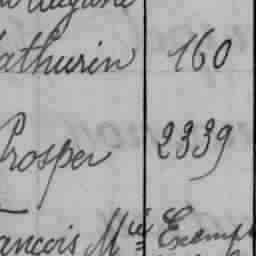 athurin 160
Prosper 2339
ançois Mie Exempt